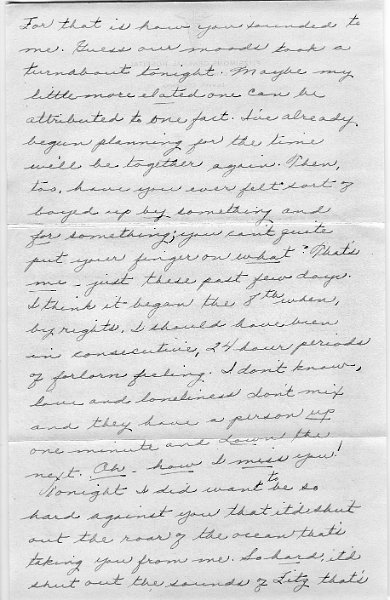 For that is how you sounded to
me. Guess our moods took a
turnabout tonight. Maybe my
little more elated one can be
attributed to one fact. I've already
begun planning for the time
we'll be together again. Then,
too, have you ever felt sort of
boyed up by something and
for something; you can't quite
put your finger on what? That's
me - just these past few days.
I think it began the 8th when,
by rights, I should have been
in consecutive, 24 hour periods
of forlorn feeling. I don't know,
love and loneliness don't mix
and they have a person up
one minute and down the
next. Oh - how I miss you!
Tonight I did want to be so
hard against you that it'd shut
out the roar of the ocean that's
taking you from me. So hard, it'd
shut out the sounds of that's